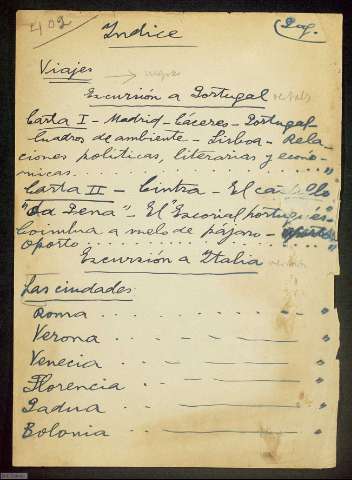 402
Indice
Pag.
Viajes
Excursión a Portugal
Carta I - Madrid - Cáceres - Portugal -
Cuadros de ambiente - Lisboa - Rela-
ciones políticas, literarias y econó-
micas. . . . . . . . . . . . . . . . . "
Carta II - Cintra - El castillo
"da Pena" - El "Escorial portugués
Coimbra a vuelo de pájaro -
Oporto . . . . . . . . . . . . . . . . "
Excursión a Italia
Las ciudades
Roma . . . . . . . . - - "
Verona . . . . . . . . "
Venecia . . . . . . . . "
Florencia . . . . . . . "
Padua . . . . . . . . "
Bolonia . . . . . . . . "